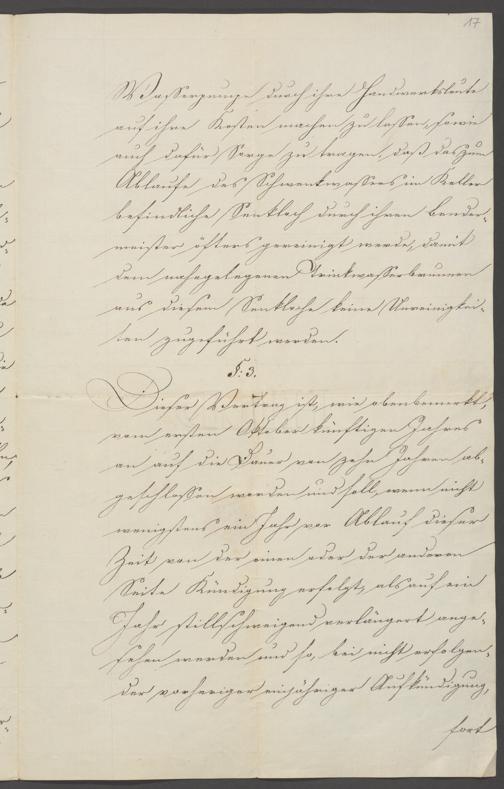 17
Wasserpumpe durch ihre Handwerksleute
auf ihre Kosten machen zu lassen, sowie
auch dafür Sorge zu tragen, daß das zum
Ablaufe des Schwenkwassers im Keller
befindliche Senkloch durch ihren Bender-
meister öfters gereinigt werde, damit
dem nahegelegenen Trinkwasserbrunnen
aus diesem Senkloche keine Unreinigkei-
ten zugeführt werden.
§: 3.
Dieser Vertrag ist, wie oben bemerkt,
vom ersten Oktober künftigen Jahres
an auf die Dauer von zehn Jahren ab-
geschlossen worden und soll, wenn nicht
wenigstens ein Jahr vor Ablauf dieser
Zeit von der einen oder der anderen
Seite Kündigung erfolgt, als auf ein
Jahr stillschweigend verlängert ange-
sehen werden und so, bei nicht erfolgen-
der vorheriger einjähriger Aufkündigung,
fort